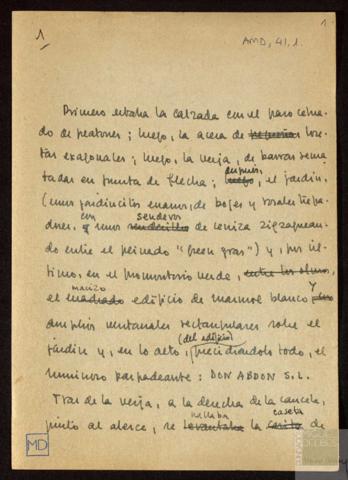 1
1
AMD, 41, 1.
Primero estaba la calzada con el paso cebra-
do de peatones; luego, la acera de pequeñas lose-
tas exagonales; luego, la verja, de barras rema
tadas en punta de flecha; luego, después, el jardín,
(unos jardincitos enanos, de bojes y rosales trepa-
dores, y con unos senderos de ceniza zigzaguean-
do entre el peinado "green gras") y, por úl-
timo, en el promontorio verde, entre los olmos,
el macizo edificio de mármol blanco y
amplios ventanales rectangulares sobre el
jardín y, en lo alto, (del edificio) presidiéndolo todo, el
luminoso parpadeante: DON ABDON S.L.
Tras de la verja, a la derecha de la cancela,
junto al alerce, se levantaba hallaba la caseta de
MD